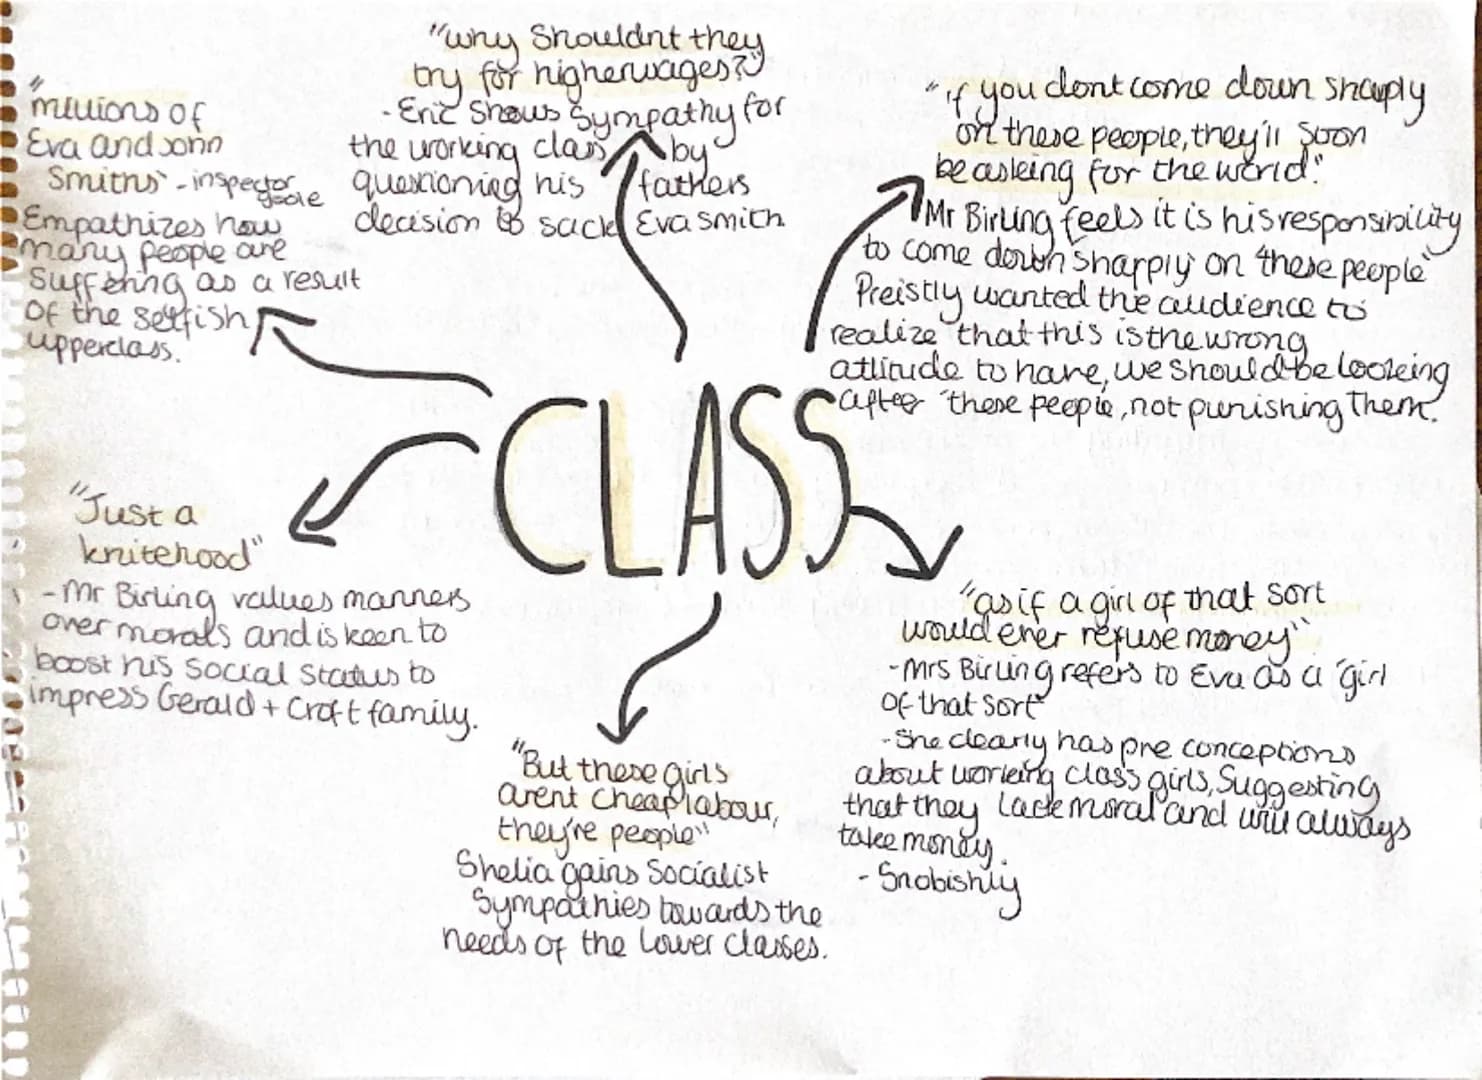 "why Shouldnt they
try for higher wages?"
- Eric Shows Sympathy for
the working class by
questioning his fathers
decision to sack Eva Smith.
"millions of
Eva and John
Smiths" - inspector
goole
Empathizes how
many people are
Suffering as a result
of the selfish
upperclass.
"if you dont come down sharply
on these people, they'll soon
be asking for the world."
Mr Birling feels it is his responsibility
to come down sharply on "these people"
Preistly wanted the audience to
realize that this is the wrong
attitude to have, we should be looking
after "these people, not punishing them.
CLASS
"Just a
knitehood"
- Mr Birling values manners
over morals and is keen to
boost his social status to
impress Gerald + Croft family.
"as if a girl of that sort
would ever refuse money"
- Mrs Birling refers to Eva as a "girl
of that sort"
- She clearly has pre conceptions
about working class girls, Suggesting
that they lack moral and will always
take money.
- Snobishly
"But these girls
arent cheap labour,
they're people"
Shelia gains Socialist
Sympathies towards the
needs of the lower classes.